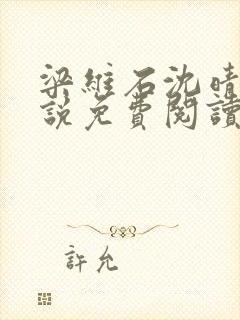 梁維石沈晴
說免費閱讀
許允